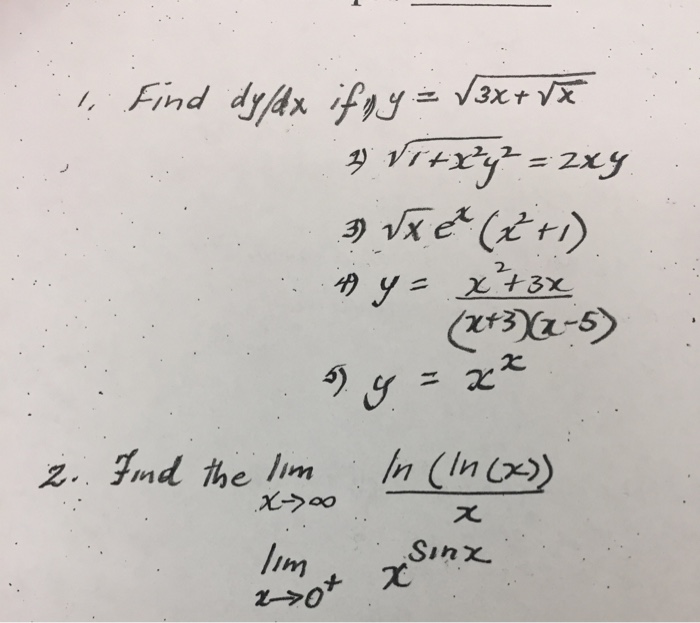 1. Find dy/dx if 1) y = √(3x + √x)
2) √(1+x²y²) = 2xy
3) √x eˣ (x²+1)
4) y = (x²+3x)/((x+3)(x-5))
5) y = xˣ
2. Find the lim x→∞ ln (ln(x))/x
lim x→0⁺ x^sinx